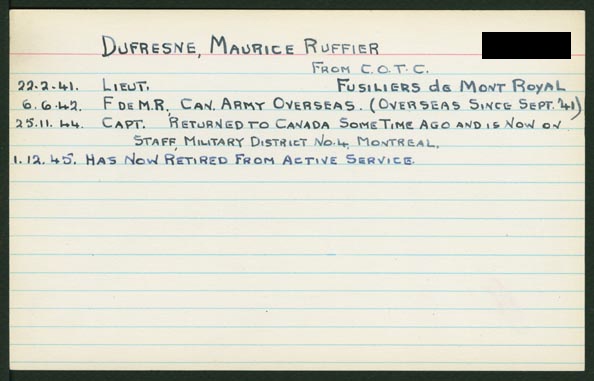 DUFRESNE, MAURICE RUFFIER
FROM C.O.T.C.
22.2.41. LIEUT. FUSILIERS de MONT ROYAL
6.6.42. F DE M.R, CAN. ARMY OVERSEAS. (OVERSEAS SINCE SEPT. '41)
25.11.44. CAPT. RETURNED TO CANADA SOME TIME AGO AND IS NOW ON
STAFF, MILITARY DISTRICT NO.4, MONTREAL.
1.12.45. HAS NOW RETIRED FROM ACTIVE SERVICE.